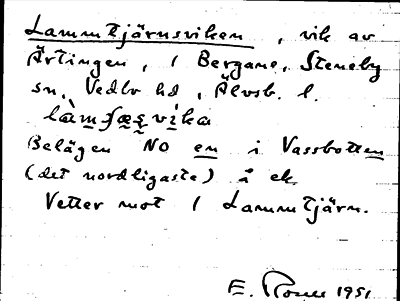 Lammtjärnsviken, vik av
Ärtingen, / Bergane, Steneby
sn, Vedbo hd, Älvsb. l.
Belägen NO en i Vassbotten
(det nordligaste) å ek.
Vetter mot / Lammtjärn.
E. 1951